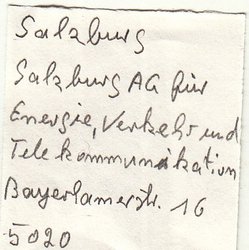 Salzburg
Salzburg AG für
Energie, Verkehr und
Telekommunikation
Bayerhamerstr. 16
5020